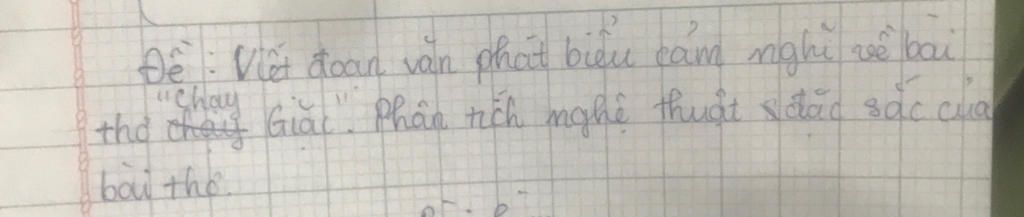 Đề: Viết đoạn văn phát biểu cảm nghĩ về bài
thơ "Chạy Giặc". Phân tích nghệ thuật đặc sắc của
bài thơ.